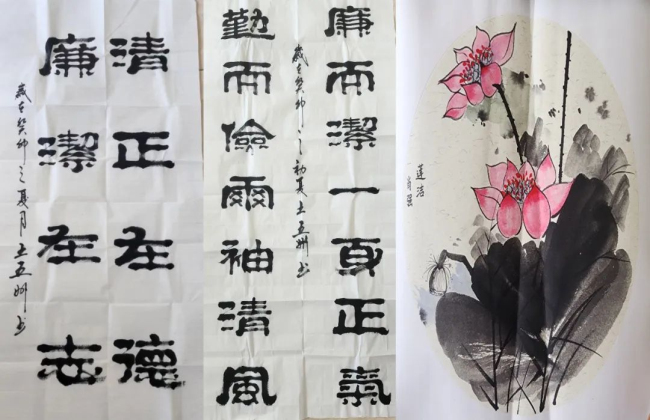 清正在德
廉潔在志
歲在癸卯之夏月王五州书
廉而潔一身正氣
歲在癸卯之初夏王五州书
勤而儉兩袖清風
莲洁